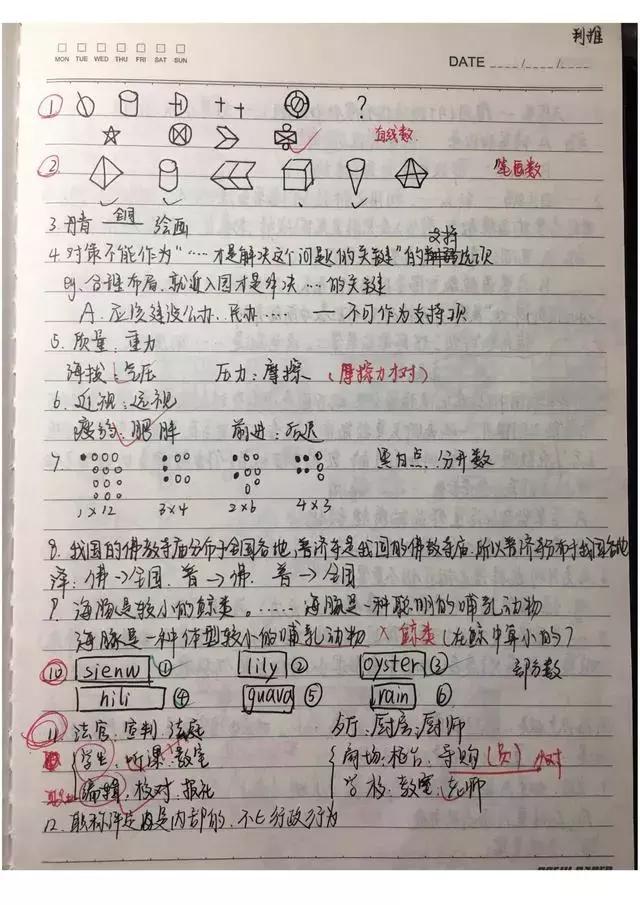 判推
MON TUE WED THU FRI SAT SUN
DATE
① + + ?
直线数
② 笔画数
3. 丹青 绘画
4. 对策不能作为"……才是解决这个问题的关键"的支持选项
eg. 合理布局、就近入园才是解决…的关键
A. 应该建设公办、民办…… — 不可作为支持项
5. 质量:重力
海拔:气压 压力:摩擦 (摩擦力才对)
6. 近视:远视
:肥胖 前进:后退
7. 黑白点、分开数
1×12 3×4 2×6 4×3
8. 我国的佛教寺庙分布于全国各地,普济寺是我国的佛教寺庙.所以普济寺分布于我国各地
译:佛→全国.普→佛.普→全国
9. 海豚是较小的鲸类。……海豚是一种聪明的哺乳动物
海豚是一种体型较小的哺乳动物 × 鲸类(在鲸中算小的)
⑩ sienw ① lily ② oyster ③ 部分数
hili ④ guava ⑤ rain ⑥
11. 法官:宣判:法庭 厨房:厨师
学生:听课:教室 商场:柜台:导购(员)才对
编辑:校对:报社 学校:教室:老师
12. 职称评定因是内部的,不是行政行为